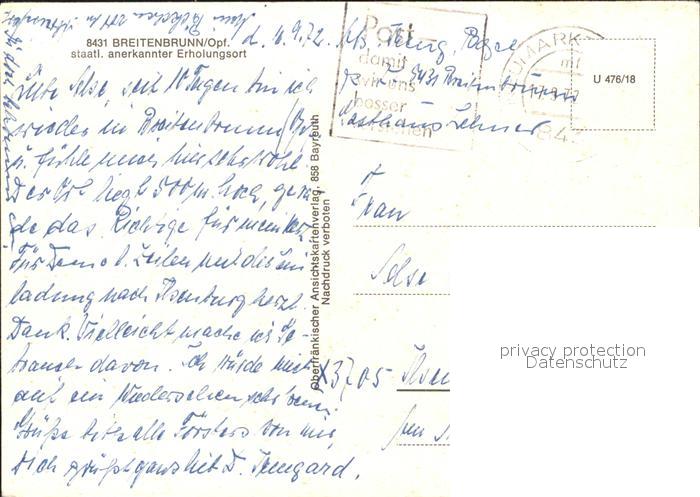 8431 BREITENBRUNN/Opf.
staatl. anerkannter Erholungsort
d. 10.9.72.
Liebe Else, seit 10 Tagen bin ich
wieder in Breitenbrunn/Opf
u. fühle mich hier sehr wohl.
Der Ort liegt 500 m hoch, gera
de das Richtige für mein Herz.
Für Deine l. Zeilen und die Ein
ladung nach Ilsenburg herzl.
Dank. Vielleicht mache ich Ge-
brauch davon. Ich würde mich
auf ein Wiedersehen sehr freuen.
Grüße bitte alle Försters von mir,
Dich grüßt ganz lieb D. Irmgard.
Oberfränkischer Ansichtskartenverlag, 858 Bayreuth
Nachdruck verboten
Post
damit
wir uns
besser
verstehen
8431 Breitenbrunn
Gasthaus
U 476/18
Frau
Else
X 3705 Ilsen
privacy protection
Datenschutz